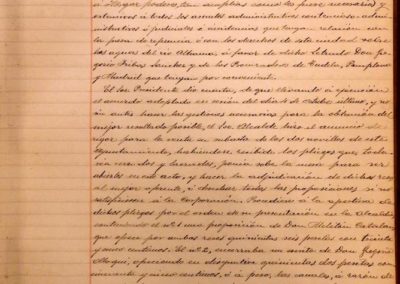 á mayor poder, tan amplias como les fuere necesario y
extensivas á todos los asuntos administrativos, contencioso-admi-
nistrativos ó judiciales ó pendientes que tenga relación con
la presa de represia ó con los derechos de esta ciudad sobre
las aguas del río Alhama, á favor de dicho Letrado Don Gre-
gorio Iribas Sanchez y de los Procuradores de Tudela, Pamplona
y Madrid que tengan por conveniente.
El Sor. Presidente dió cuenta, de que llevando á ejecución
el acuerdo adoptado en sesión del día de Octubre último, y no
sin antes hacer las gestiones necesarias para la obtención del
mejor resultado posible, el Sor. Alcalde hizo el anuncio de
rigor para la venta en subasta de los dos novillos de este
Ayuntamiento, habiéndose recibido los pliegos que, todavía
cerrados y lacrados, ponía sobre la mesa para ser
abiertos en este acto, y hacer la adjudicación de dichas reses
al mejor oferente, ó desechar todas las proposiciones si no
satisfaciesen á la Corporación. Procedióse á la apertura de
dichos pliegos por el orden de su presentación en la Alcaldía,
conteniendo el nº 1 una proposición de Don Melitón Catalan
que ofrece por ambas reses quinientas seis pesetas con treinta
y cinco centimos. El nº 2, encerraba un escrito de Don
Magui, ofreciendo en disyuntiva quinientas dos pesetas con
cincuenta y cinco centimos, ó á peso, las canales, á razón de